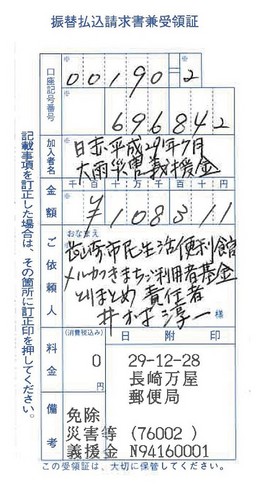 振替払込請求書兼受領証
口座記号番号
00190=2
696842
加入者名
日赤平成29年7月
大雨災害義援金
金額
千百十万千百十円
¥108311
ご依頼人
おなまえ
長崎市民生活便利館
メルカつきまち ご利用者基金
とりまとめ 責任者
井 淳一 様
料金
(消費税込み)
0 円
日附印
29-12-28
長崎万屋
郵便局
備考
免除
災害等 (76002)
義援金 N94160001
記載事項を訂正した場合は、その箇所に訂正印を押してください。
この受領証は、大切に保管してください。